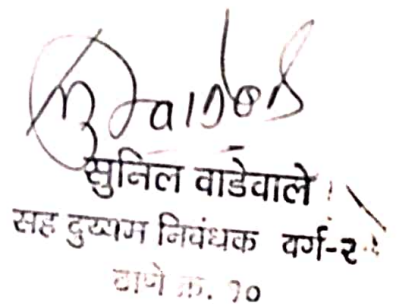 सुनिल वाडेवाले
सह दुय्यम निबंधक वर्ग-२
ठाणे क्र. १०